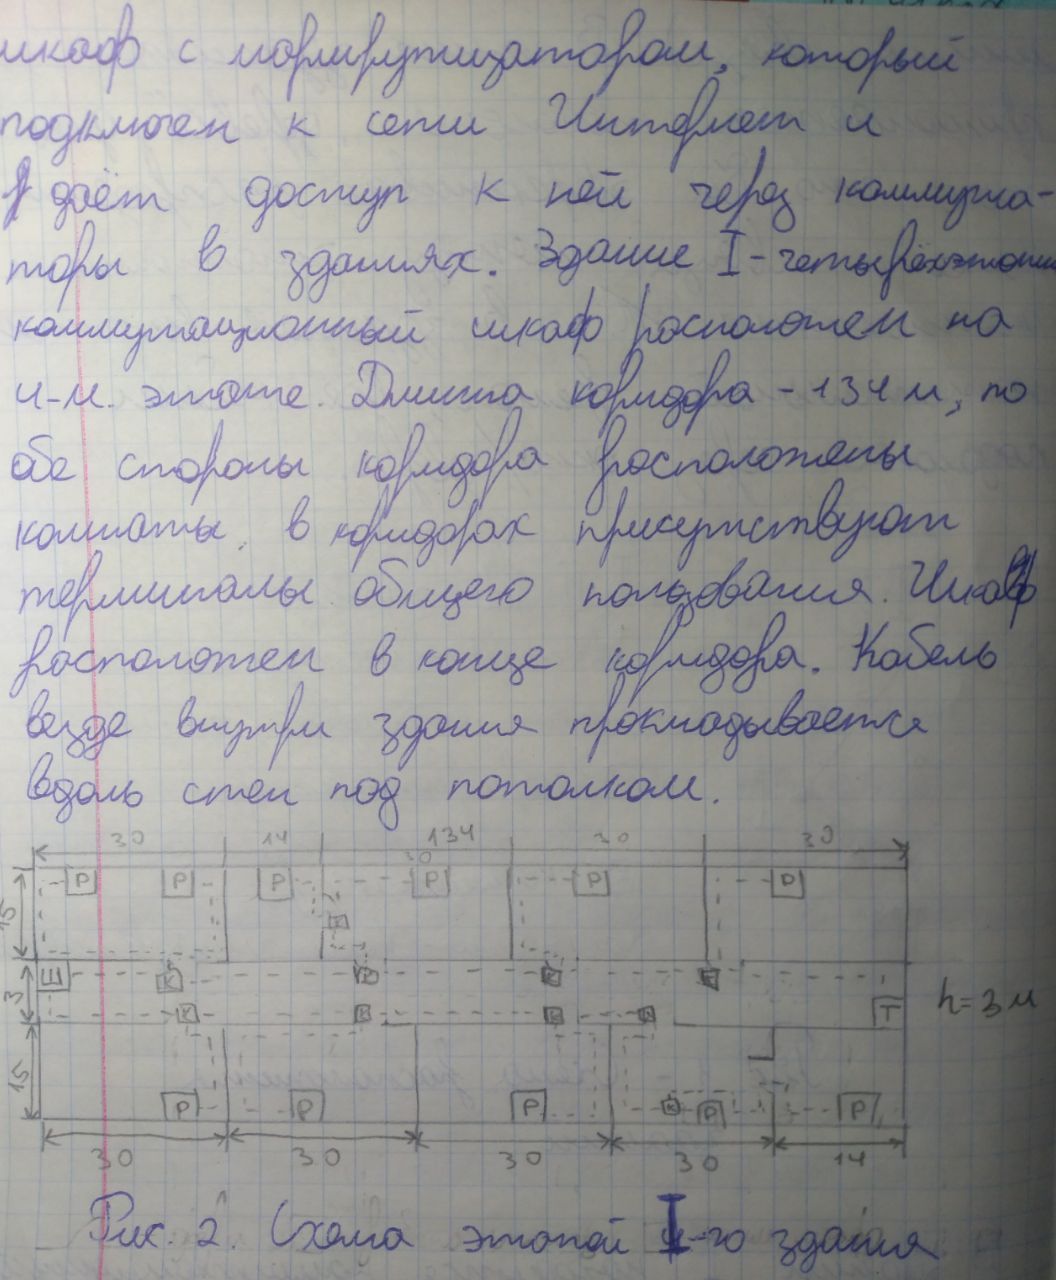 шкаф с маршрутизатором, который
подключен к сети Интернет и
даёт доступ к ней через коммута-
торы в зданиях. Здание I - четырёхэтажн
коммутационный шкаф расположен на
4-м этаже. Длина коридора - 134 м, по
обе стороны коридора расположены
комнаты, в коридорах присутствуют
терминалы общего пользования. Шкаф
расположен в конце коридора. Кабель
везде внутри здания прокладывается
вдоль стен под потолком.
30 14 134 30 30
30
15 P P P P P P
К
3 Ш К К К К
К К К К Т h = 3 м
15 P P P К P P
30 30 30 30 14
Рис. 2. Схема этажей I-го здания